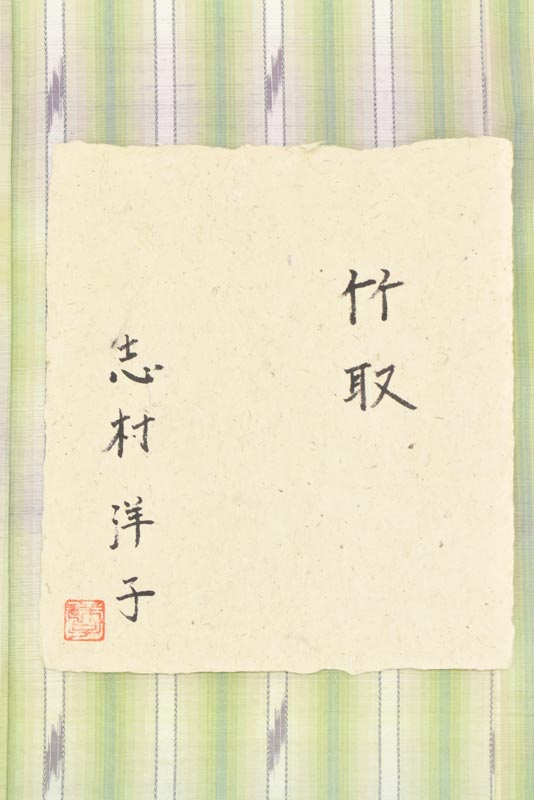 竹取
志村洋子